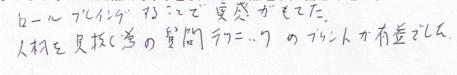 ロールプレイングすることで実感がもてた。
人材を見抜く為の質問テクニックのプリントが有益でした。